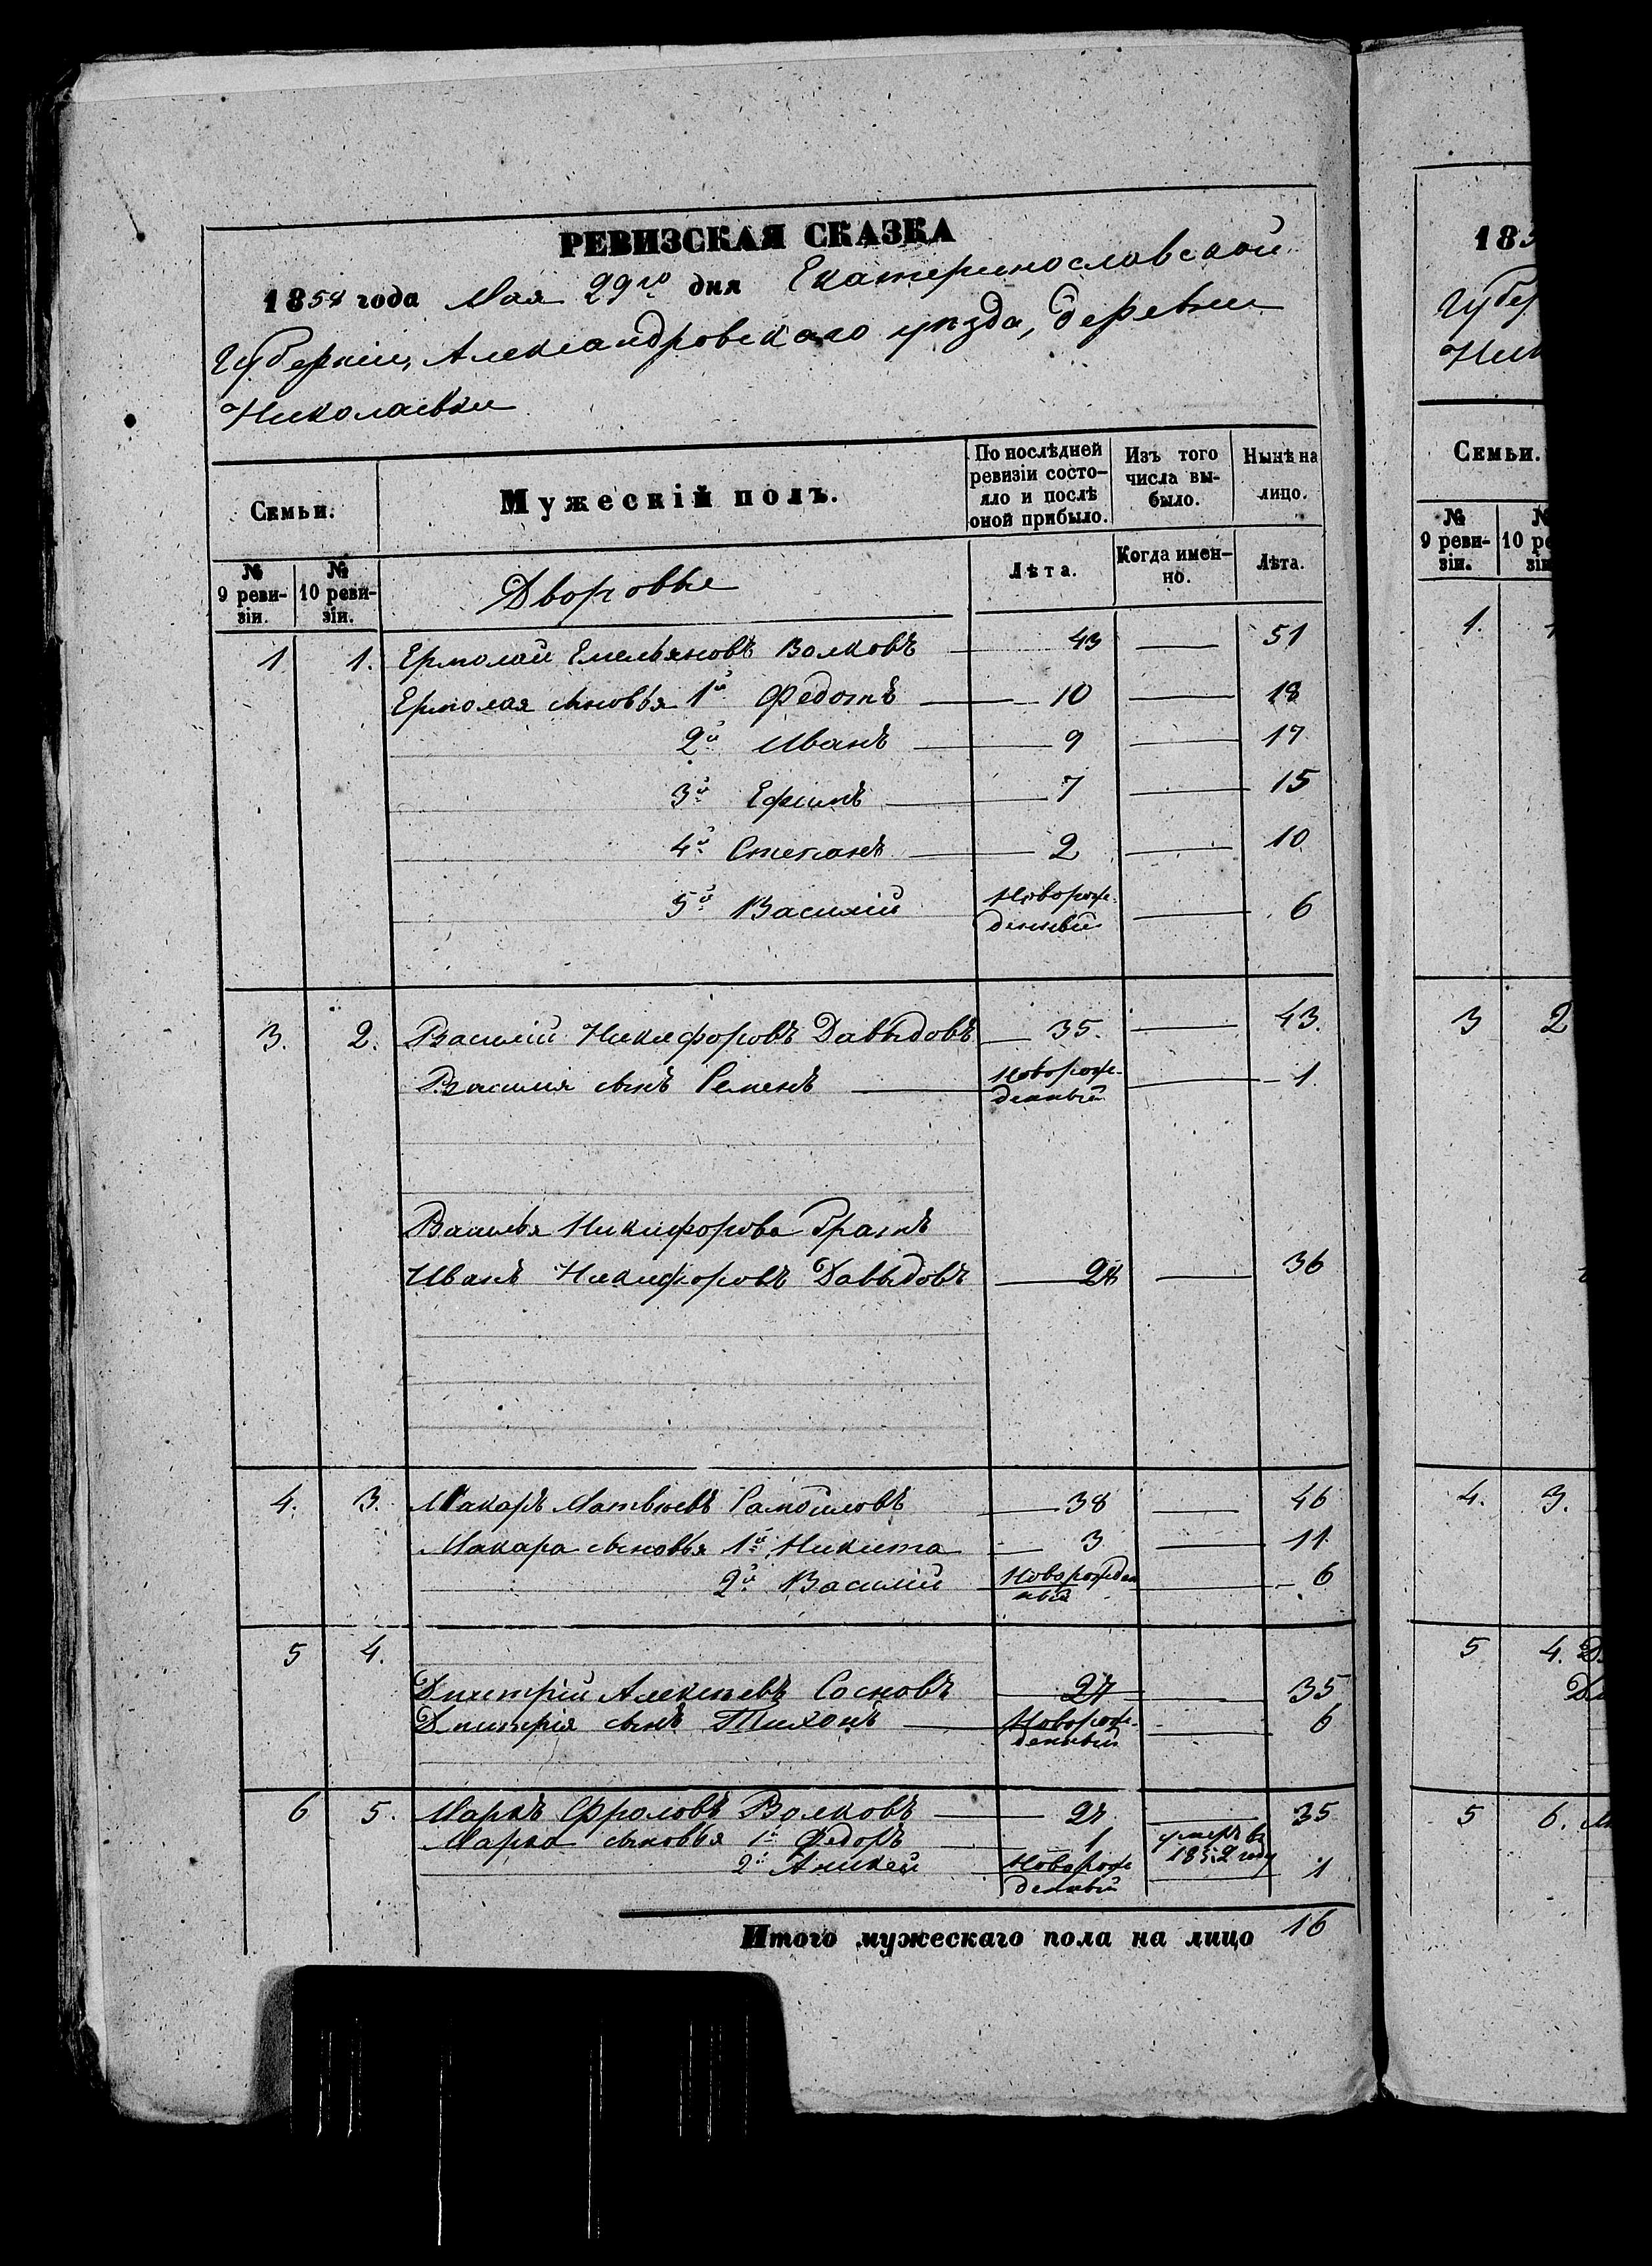 РЕВИЗСКАЯ СКАЗКА
1858 года Мая 29го дня Екатеринославской
Губерніи, Александровскаго уѣзда, деревни
Николаевки
Семьи.
Мужескій полъ.
По послѣдней ревизіи состо-
яло и послѣ
оной прибыло.
Изъ того
числа вы-
было.
Нынѣ на
лицо.
№ 9 реви-
зіи.
№ 10 реви-
зіи.
Дворовые
Лѣта.
Когда имен-
но.
Лѣта.
1 1. Ермолай Емельяновъ Волковъ 43 — 51
Ермолая сыновья 1й Федотъ 10 — 18
2й Иванъ 9 — 17
3й Ефимъ 7 — 15
4й Степанъ 2 — 10
5й ВасилійНоворож-
денный — 6
3. 2. Василій Никифоровъ Давыдовъ 35. — 43.
Василія сынъ Семенъ Новорож-
денный — 1.
Василья Никифорова братъ
Иванъ Никифоровъ Давыдовъ 28 — 36
4. 3. Макаръ Матвѣевъ Самойловъ 38 — 46
Макара сыновья 1й Никита 3 — 11.
2й Василій Новорожден
ный — 6
5 4.
Дмитрій Алексѣевъ Сосновъ 27 — 35
Дмитрія сынъ Тихонъ Новорож-
денный — 6
6 5. Маркъ Фроловъ Волковъ 27 — 35
Марка сыновья 1й Федоръ 1 умеръ въ
1852 году
2й Аникей Новорож
денный — 1
Итого мужескаго пола на лицо 16
185
Губер
Ник
Семьи.
№ 9 реви-
зіи.
№ 10 ре
зіи
1.
3 2
4. 3.
5 4. Д
Дм
5 6. М